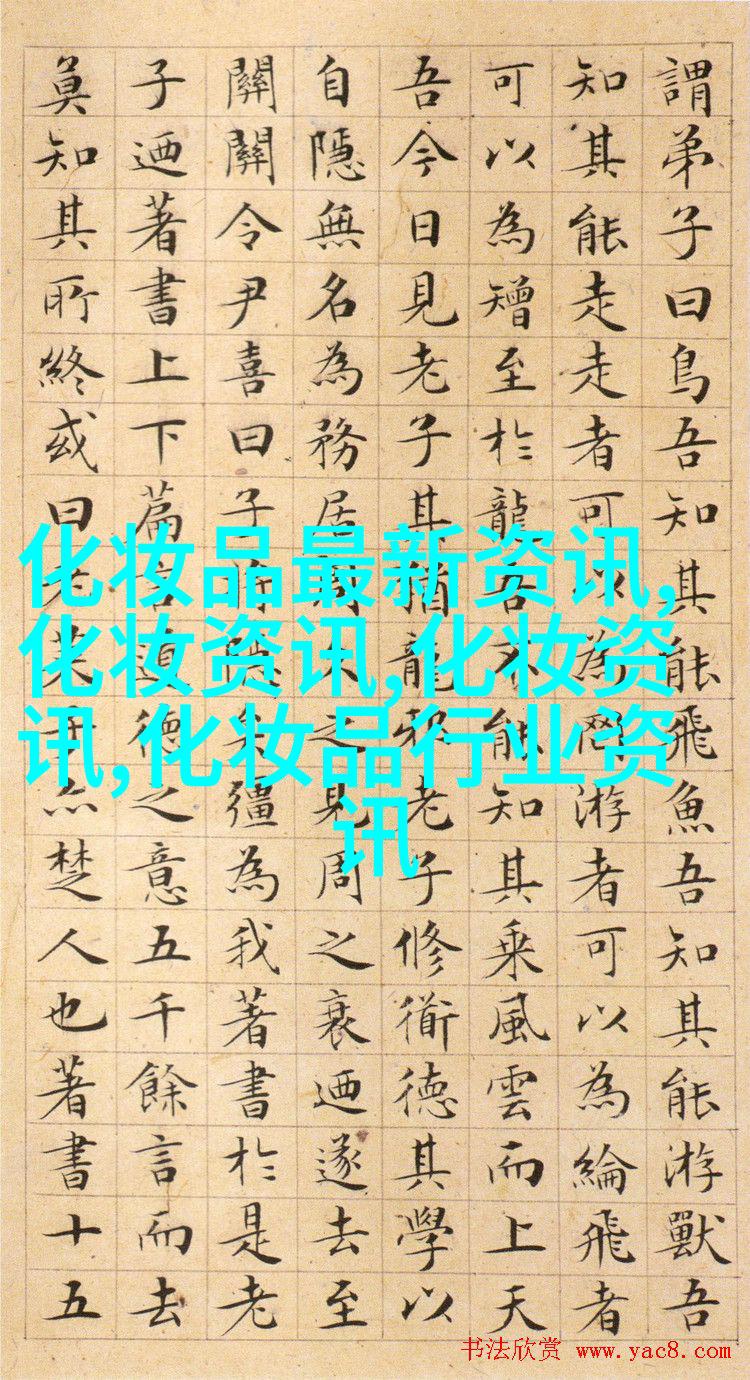 謂弟子曰鳥吾知其能飛魚吾知其能游獸吾
知其能走走者可以為罔游者可以為綸飛者
可以為矰至於龍吾不能知其乗風雲而上天
吾今日見老子其猶龍邪老子修衜德其學以
自隱無名為務居周久之見周之衰迺遂去至
關關令尹喜曰子將隱矣彊為我著書於是老
子迺著書上下篇言道德之意五千餘言而去
莫知其所終或曰老萊子亦楚人也著書十五
化妆品最新资讯,
化妆资讯,化妆资
讯,化妆品行业资
讯
书法欣赏 www.yac8.com